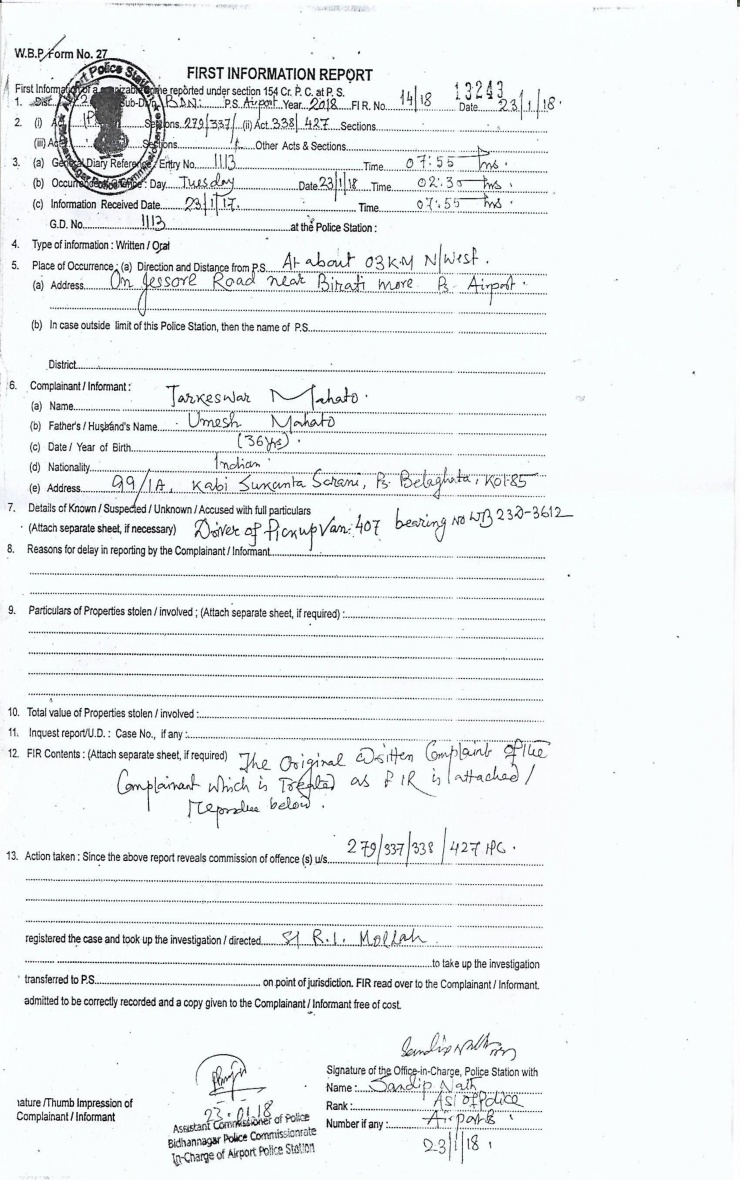 W.B.P. Form No. 27
FIRST INFORMATION REPORT
First Information of a cognizable crime reported under section 154 Cr. P. C. at P. S.
13243
1. Dist. Sub-Divn BDN: P.S. Airport Year 2018 FI R. No. 14/18 Date 23/1/18.
2. (i) Act Sections 279/337/ (ii) Act 338/427 Sections
(iii) Act Sections Other Acts & Sections
3. (a) General Diary Reference / Entry No. 1113 Time 07:55 hrs.
(b) Occurrence of Offence : Day. Tuesday Date 23/1/18 Time 02:30 hrs.
(c) Information Received Date 23/1/17. Time 07:55 hrs
G.D. No. 1113 at the Police Station :
4. Type of information : Written / Oral
5. Place of Occurrence : (a) Direction and Distance from P.S. At about 03 K.M N/West.
(a) Address On Jessore Road near Birati more Ps Airport.
(b) In case outside limit of this Police Station, then the name of P.S.
District
6. Complainant / Informant :
(a) Name Tarkeswar Mahato.
(b) Father's / Husband's Name Umesh Mahato
(c) Date / Year of Birth (36 yrs).
(d) Nationality Indian
(e) Address 99/1A, Kabi Sukanta Sarani, Ps. Belaghata, Kol-85
7. Details of Known / Suspected / Unknown / Accused with full particulars
(Attach separate sheet, if necessary) Driver of Pickup Van. 407 bearing no WB 23D-3612
8. Reasons for delay in reporting by the Complainant / Informant
9. Particulars of Properties stolen / involved ; (Attach separate sheet, if required) :
10. Total value of Properties stolen / involved :
11. Inquest report/U.D. : Case No., if any :
12. FIR Contents : (Attach separate sheet, if required) The Original Written Complaint of the
Complainant which is Treated as FIR is attached /
Reproduce below.
13. Action taken : Since the above report reveals commission of offence (s) u/s. 279/337/338/427 IPC.
registered the case and took up the investigation / directed SI R.I. Mollah
to take up the investigation
transferred to P.S. on point of jurisdiction. FIR read over to the Complainant / Informant.
admitted to be correctly recorded and a copy given to the Complainant / Informant free of cost.
Signature of the Office-in-Charge, Police Station with
Name : Sandip Nath
Rank : ASI of Police
Number if any : Airport PS
23/1/18.
ature /Thumb Impression of
Complainant / Informant
23.01.18
Assistant Commissioner of Police
Bidhannagar Police Commissionrate
In-Charge of Airport Police Station
Airport Police Station
Bidhannagar Police Commissionerate